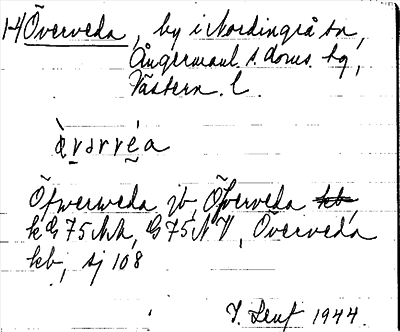 H Överveda, by i Nordingrå sn,
Ångermanl. s. doms. tg,
Västern. l.
ö̀vərvéa
Öfwerweda jb, Öfverveda kb,
kG 75 NV, Överveda
kb, sj 108
1944.